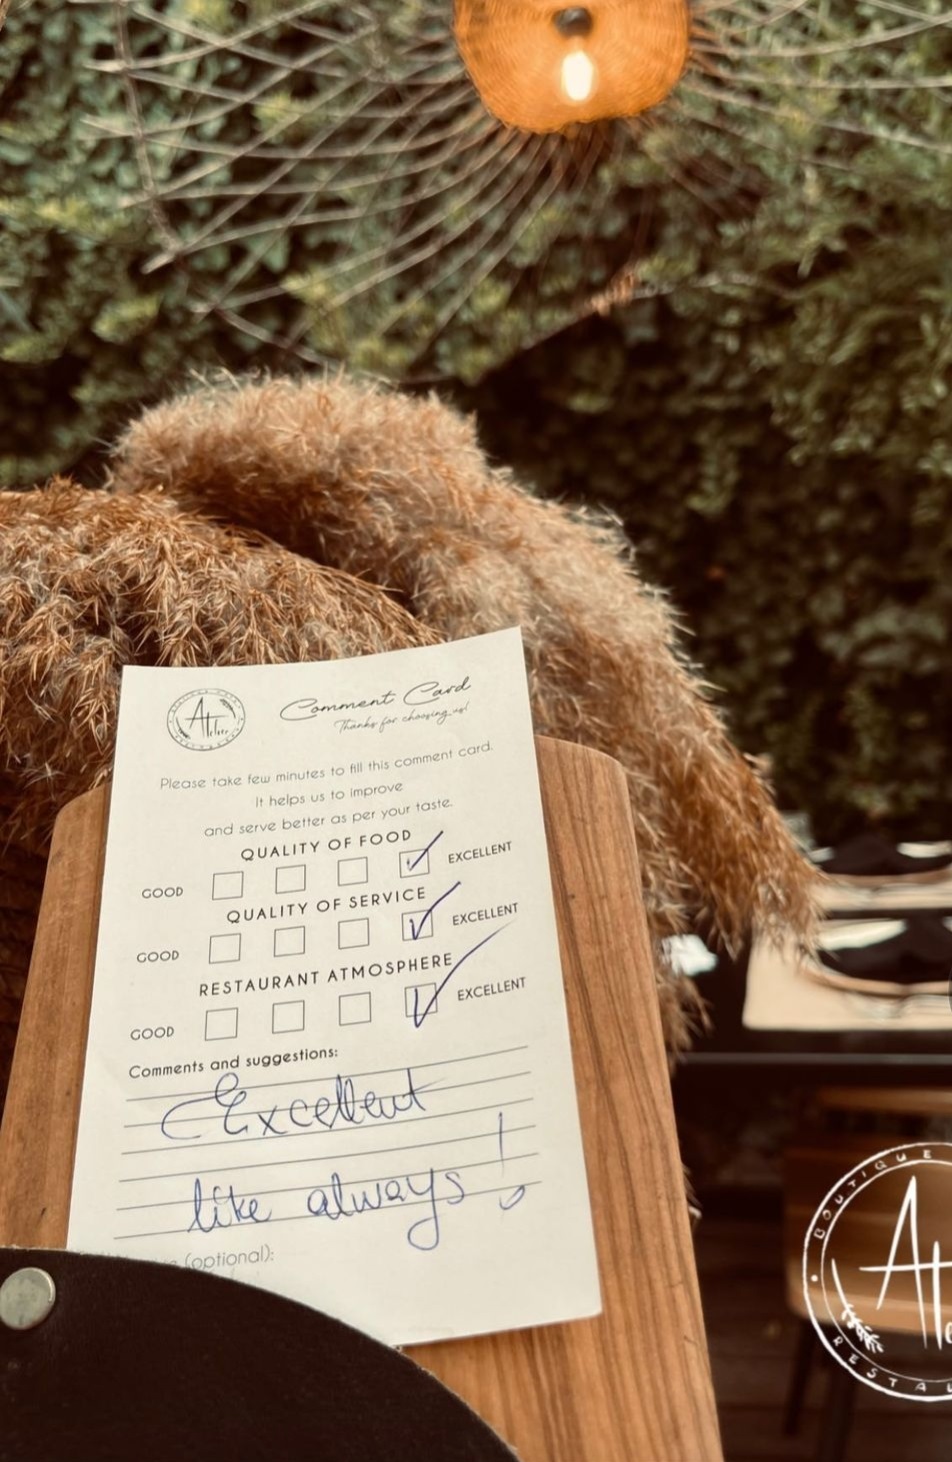 Atelier
Comment Card
Thanks for choosing us!
Please take few minutes to fill this comment card.
It helps us to improve
and serve better as per your taste.
QUALITY OF FOOD
GOOD EXCELLENT
QUALITY OF SERVICE
GOOD EXCELLENT
RESTAURANT ATMOSPHERE
GOOD EXCELLENT
Comments and suggestions:
Excellent
like always!
(optional):
BOUTIQUE